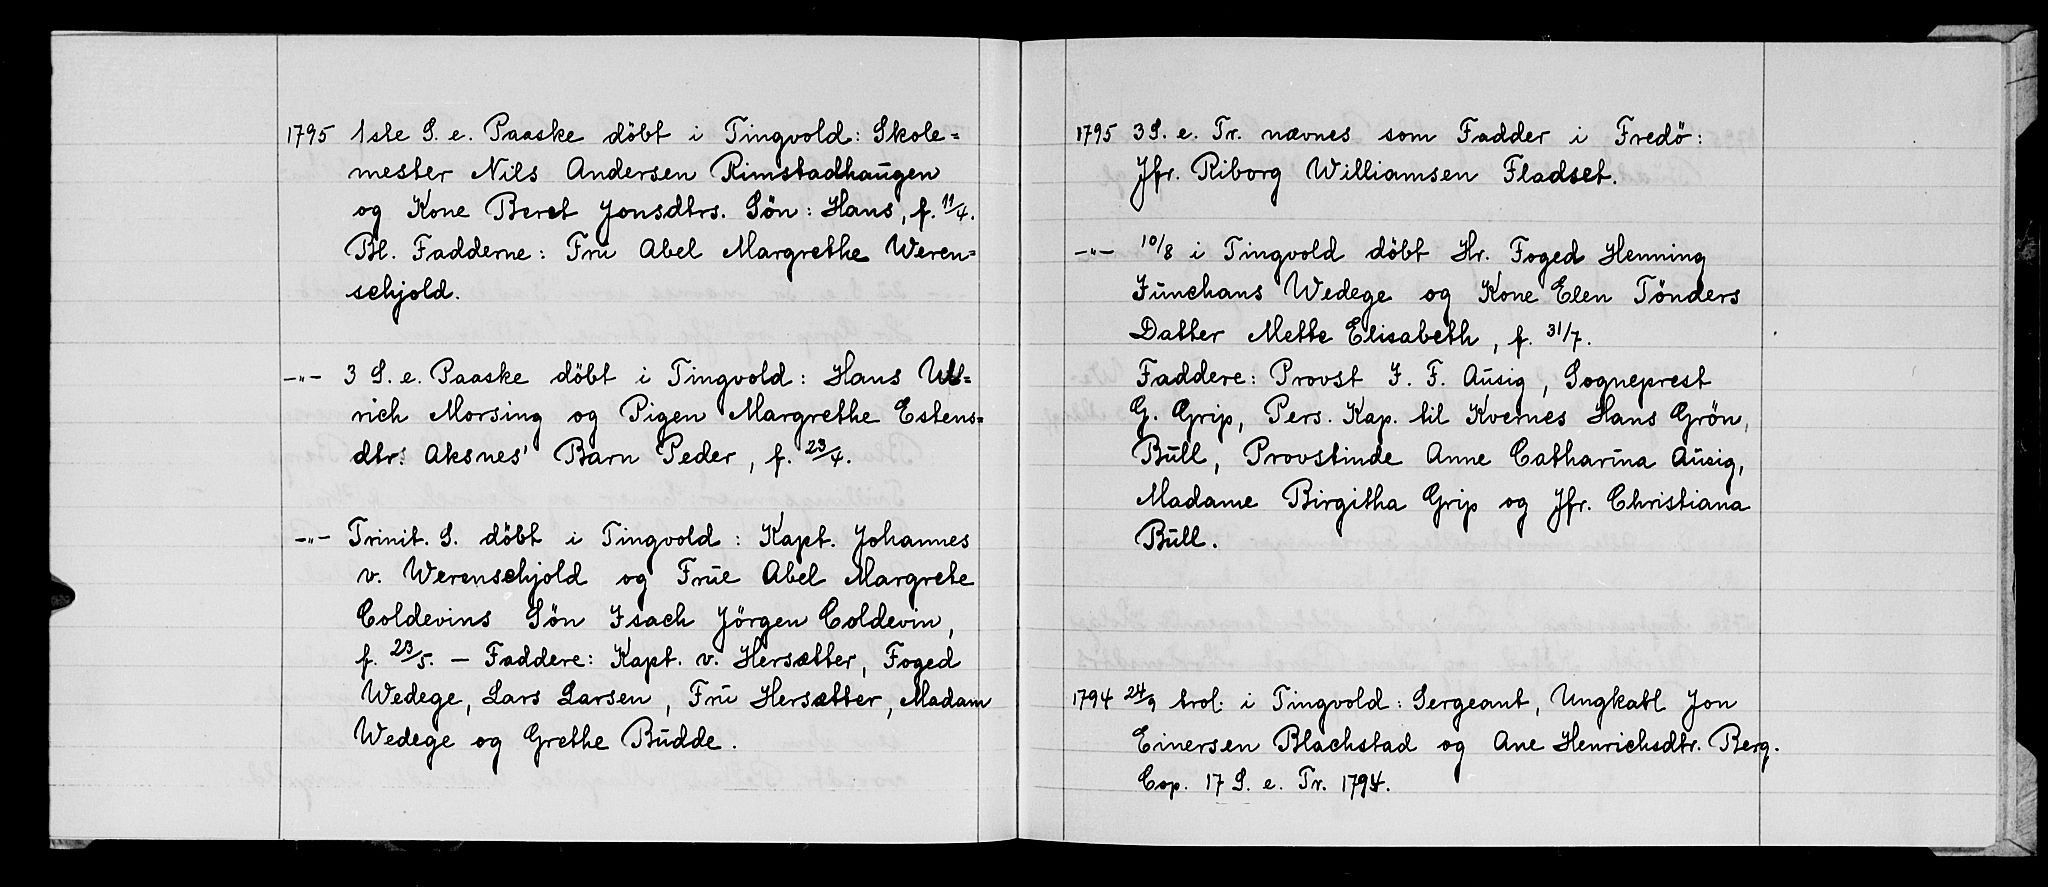 1795 1ste S. e. Paaske döbt i Tingvold: Skole=
mester Nils Andersen Rimstadhaugen
og Kone Beret Jonsdtrs. Sön: Hans, f. 11/4.
Bl. Fadderne: Fru Abel Margrethe Weren=
schjold.
—"— 3 S. e. Paaske döbt i Tingvold: Hans Ul=
rich Morsing og Pigen Margrethe Estens=
dtr: Aksnes' Barn Peder, f. 23/4.
—"— Trinit. S. döbt i Tingvold: Kapt. Johannes
v. Werenschjold og Frue Abel Margrete
Coldevins Sön Isach Jörgen Coldevin,
f. 23/5. — Faddere: Kapt. v. Hersætter, Foged
Wedege, Lars Larsen, Fru Hersætter, Madam
Wedege og Grethe Budde.
1795 3 S. e. Tr. nævnes som Fadder i Fredö:
Jfr. Riborg Williamsen Fladset.
—"— 10/8 i Tingvold döbt Hr. Foged Henning
Junchans Wedege og Kone Elen Tönders
Datter Mette Elisabeth, f. 31/7.
Faddere: Provst J. F. Ausig, Sogneprest
G. Grip, Pers. Kap. til Kvernes Hans Grön,
Bull, Provstinde Anne Catharina Ausig,
Madame Birgitha Grip og Jfr. Christiana
Bull.
1794 24/9 trol. i Tingvold: Sergeant, Ungkatl Jon
Einersen Blachstad og Ane Henrichsdtr. Berg.
Cop. 17 S. e. Tr. 1794.